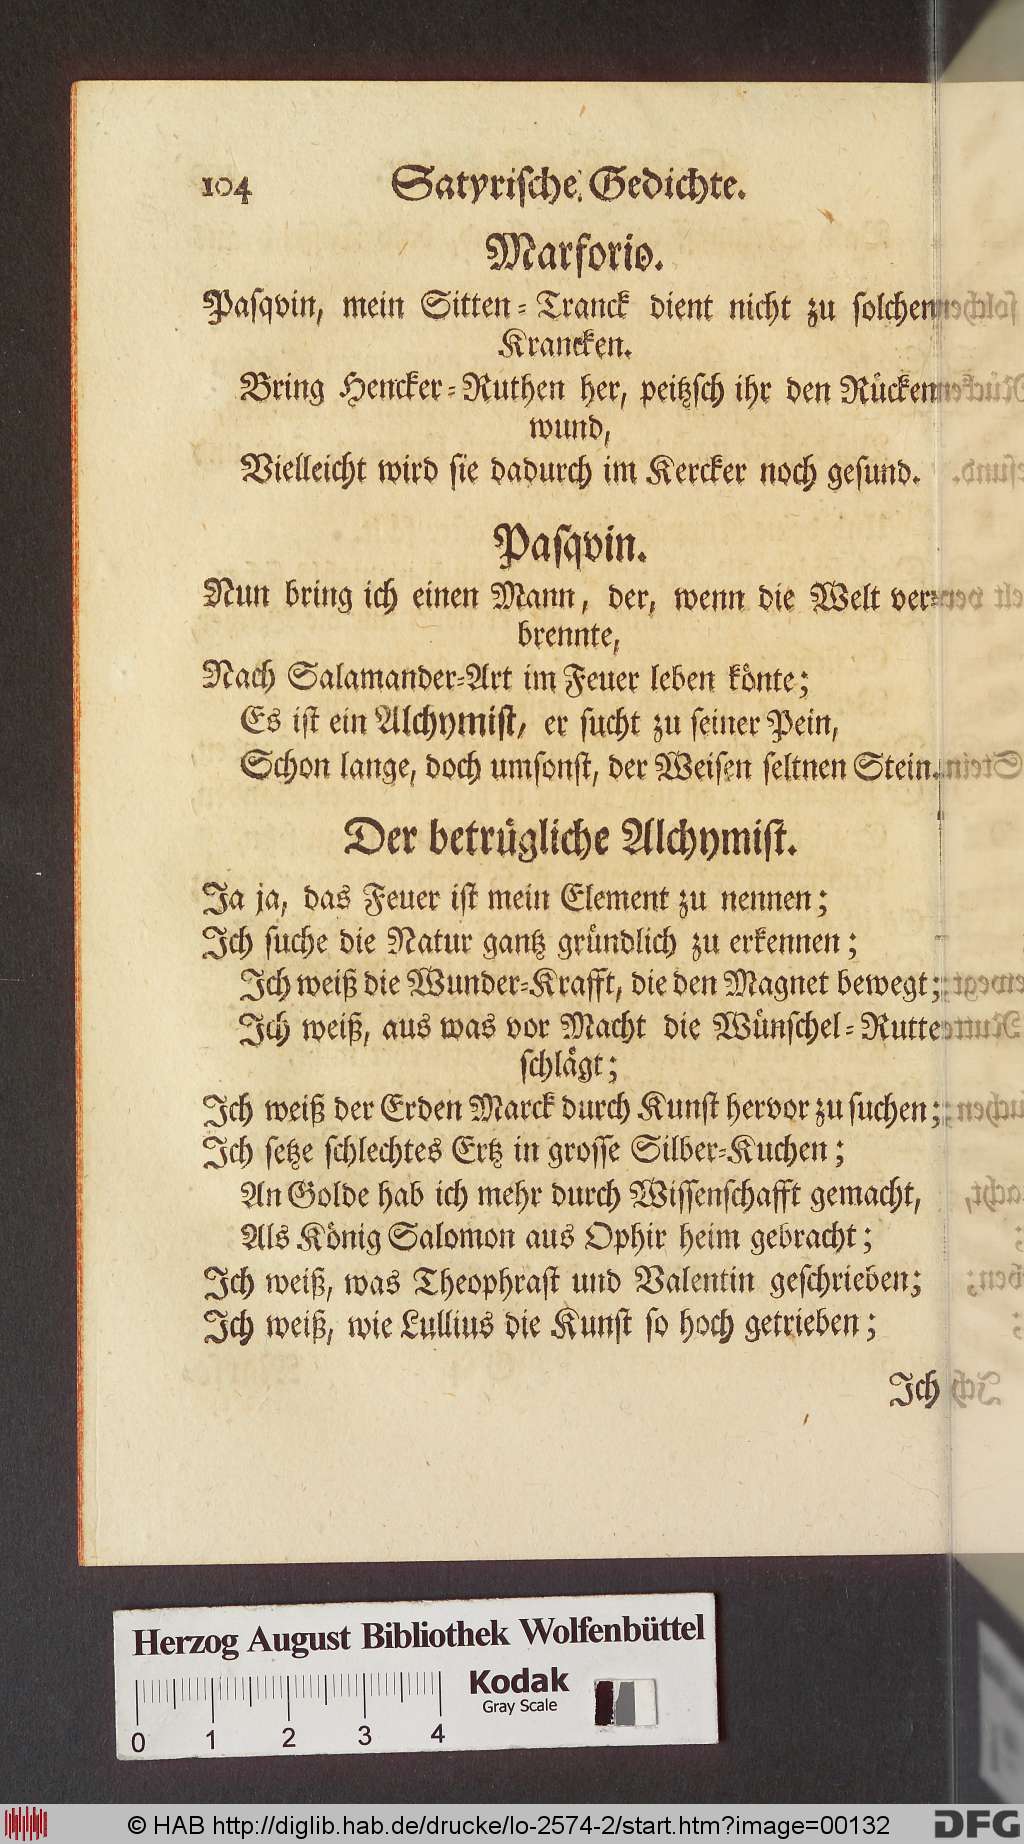 104 Satyrische Gedichte.
Marforio.
Pasqvin, mein Sitten-Tranck dient nicht zu solchen
Krancken.
Bring Hencker-Ruthen her, peitzsch ihr den Rücken
wund,
Vielleicht wird sie dadurch im Kercker noch gesund.
Pasqvin.
Nun bring ich einen Mann, der, wenn die Welt ver-
brennte,
Nach Salamander-Art im Feuer leben könte;
Es ist ein Alchymist, er sucht zu seiner Pein,
Schon lange, doch umsonst, der Weisen seltnen Stein.
Der betrügliche Alchymist.
Ja ja, das Feuer ist mein Element zu nennen;
Ich suche die Natur gantz gründlich zu erkennen;
Ich weiß die Wunder-Krafft, die den Magnet bewegt;
Ich weiß, aus was vor Macht die Wünschel-Rutte
schlägt;
Ich weiß der Erden Marck durch Kunst hervor zu suchen;
Ich setze schlechtes Ertz in grosse Silber-Kuchen;
An Golde hab ich mehr durch Wissenschafft gemacht,
Als König Salomon aus Ophir heim gebracht;
Ich weiß, was Theophrast und Valentin geschrieben;
Ich weiß, wie Lullius die Kunst so hoch getrieben;
Ich
Herzog August Bibliothek Wolfenbüttel
Kodak
Gray Scale
0 1 2 3 4
© HAB http://diglib.hab.de/drucke/lo-2574-2/start.htm?image=00132
DFG